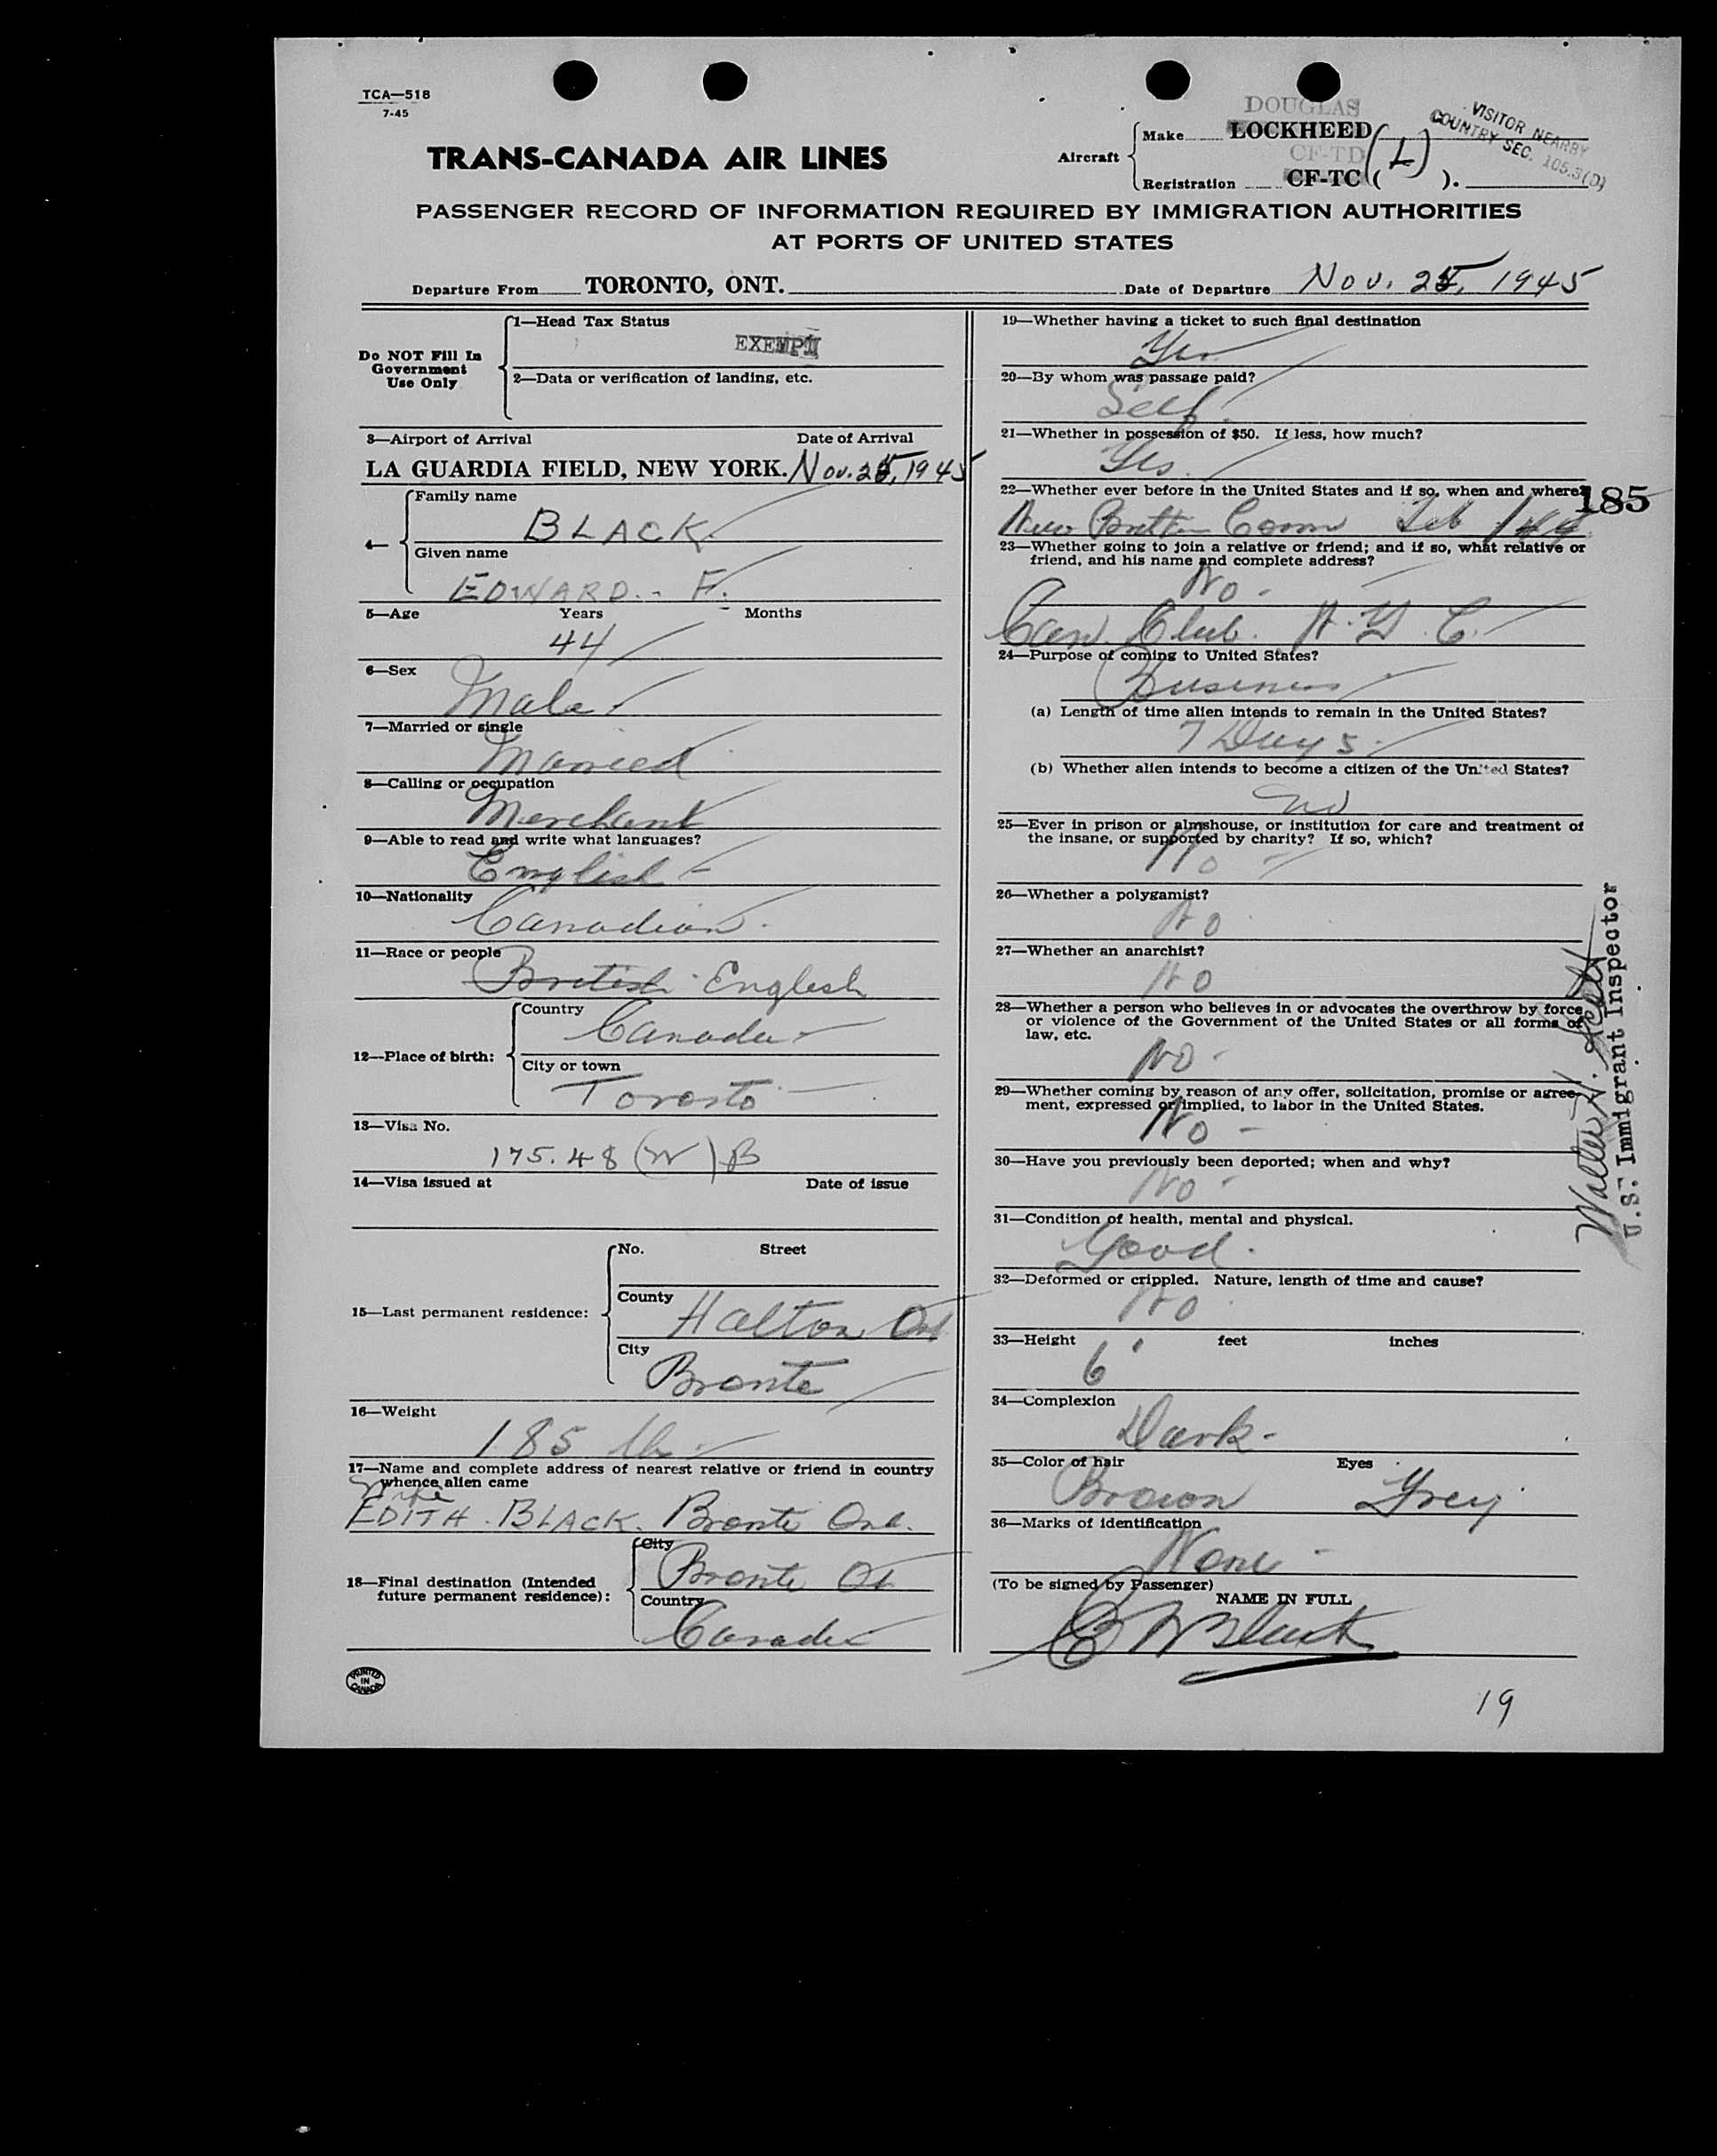 TCA—518
7-45
DOUGLAS
VISITOR NEARBY
COUNTRY SEC. 105.3(D)
TRANS-CANADA AIR LINES
Aircraft
Make LOCKHEED
CF-TD (L)
Registration CF-TC ( ).
PASSENGER RECORD OF INFORMATION REQUIRED BY IMMIGRATION AUTHORITIES
AT PORTS OF UNITED STATES
Departure From TORONTO, ONT. Date of Departure Nov. 25, 1945
Do NOT Fill In
Government
Use Only
1—Head Tax Status
EXEMPT
2—Data or verification of landing, etc.
3—Airport of Arrival Date of Arrival
LA GUARDIA FIELD, NEW YORK. Nov. 25, 1945
4—
Family name
BLACK
Given name
EDWARD. F.
5—Age Years Months
44
6—Sex
Male
7—Married or single
Married
8—Calling or occupation
Merchant
9—Able to read and write what languages?
English
10—Nationality
Canadian.
11—Race or people
British English
12—Place of birth:
Country
Canada
City or town
Toronto
13—Visa No.
175.48 (W) B
14—Visa issued at Date of issue
15—Last permanent residence:
No. Street
County
Halton Ont
City
Bronte
16—Weight
185 lbs.
17—Name and complete address of nearest relative or friend in country
whence alien came
Wife
EDITH. BLACK. Bronte Ont.
18—Final destination (Intended
future permanent residence):
City
Bronte Ot
Country
Canada
PRINTED
IN
CANADA
19—Whether having a ticket to such final destination
Yes
20—By whom was passage paid?
Self.
21—Whether in possession of $50. If less, how much?
Yes.
22—Whether ever before in the United States and if so, when and where?
185
New Britton Conn Feb 144
23—Whether going to join a relative or friend; and if so, what relative or
friend, and his name and complete address?
No -
Can. Club. N.Y.C.
24—Purpose of coming to United States?
Business
(a) Length of time alien intends to remain in the United States?
7 Days.
(b) Whether alien intends to become a citizen of the United States?
No
25—Ever in prison or almshouse, or institution for care and treatment of
the insane, or supported by charity? If so, which?
No -
26—Whether a polygamist?
No
27—Whether an anarchist?
No
28—Whether a person who believes in or advocates the overthrow by force
or violence of the Government of the United States or all forms of
law, etc.
No -
29—Whether coming by reason of any offer, solicitation, promise or agree-
ment, expressed or implied, to labor in the United States.
No -
30—Have you previously been deported; when and why?
No -
31—Condition of health, mental and physical.
Good.
32—Deformed or crippled. Nature, length of time and cause?
No
33—Height feet inches
6'
34—Complexion
Dark -
35—Color of hair Eyes
Brown Grey
36—Marks of identification
None -
(To be signed by Passenger)
NAME IN FULL
E F Black
Walter N. Scott
U.S. Immigrant Inspector
19